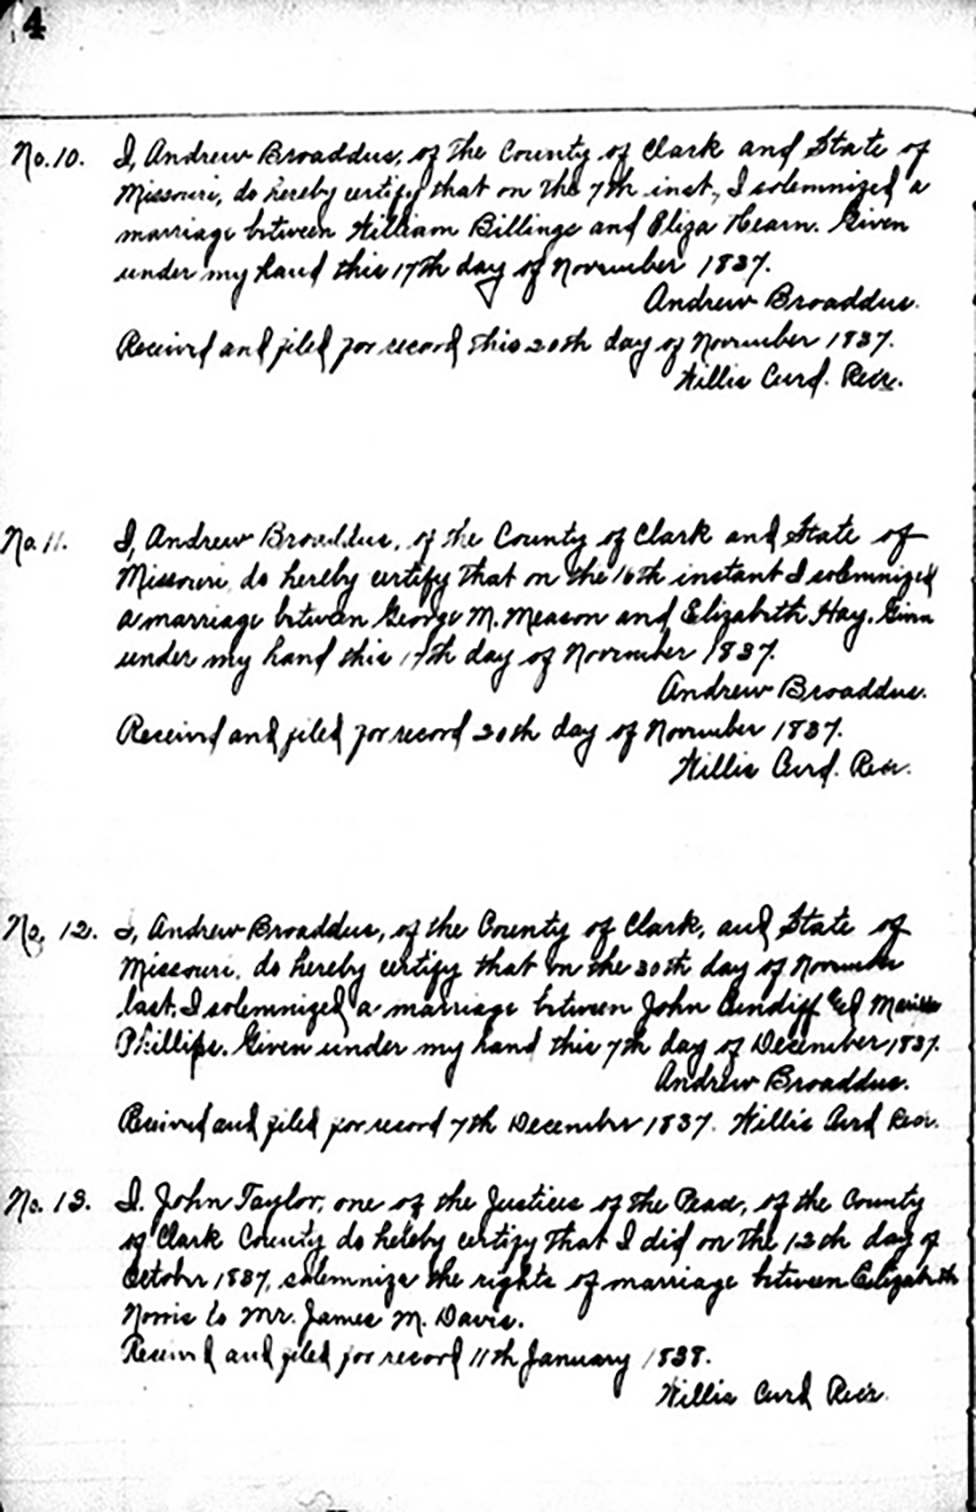 4
No. 10. I, Andrew Broaddus, of the County of Clark and State of
Missouri, do hereby certify that on the 7th inst., I solemnized a
marriage between William Billings and Eliza Hearn. Given
under my hand this 17th day of November 1837.
Andrew Broaddus.
Received and filed for record this 20th day of November 1837.
Willis Curd. Recr.
No. 11. I, Andrew Broaddus, of the County of Clark and State of
Missouri do hereby certify that on the 16th instant I solemnized
a marriage between George M. Meason and Elizabeth Hay. Given
under my hand this 17th day of November 1837.
Andrew Broaddus.
Received and filed for record 20th day of November 1837.
Willis Curd. Recr.
No. 12. I, Andrew Broaddus, of the County of Clark, and State of
Missouri, do hereby certify that on the 30th day of November
last, I solemnized a marriage between John Cundiff and
Phillips. Given under my hand this 7th day of December 1837.
Andrew Broaddus.
Received and filed for record 7th December 1837. Willis Curd Recr.
No. 13. I. John Taylor, one of the Justices of the Peace, of the County
of Clark County do hereby certify that I did on the 12th day of
October 1837, solemnize the rights of marriage between Elizabeth
Norris to Mr. James M. Davis.
Received and filed for record 11th January 1838.
Willis Curd Recr.